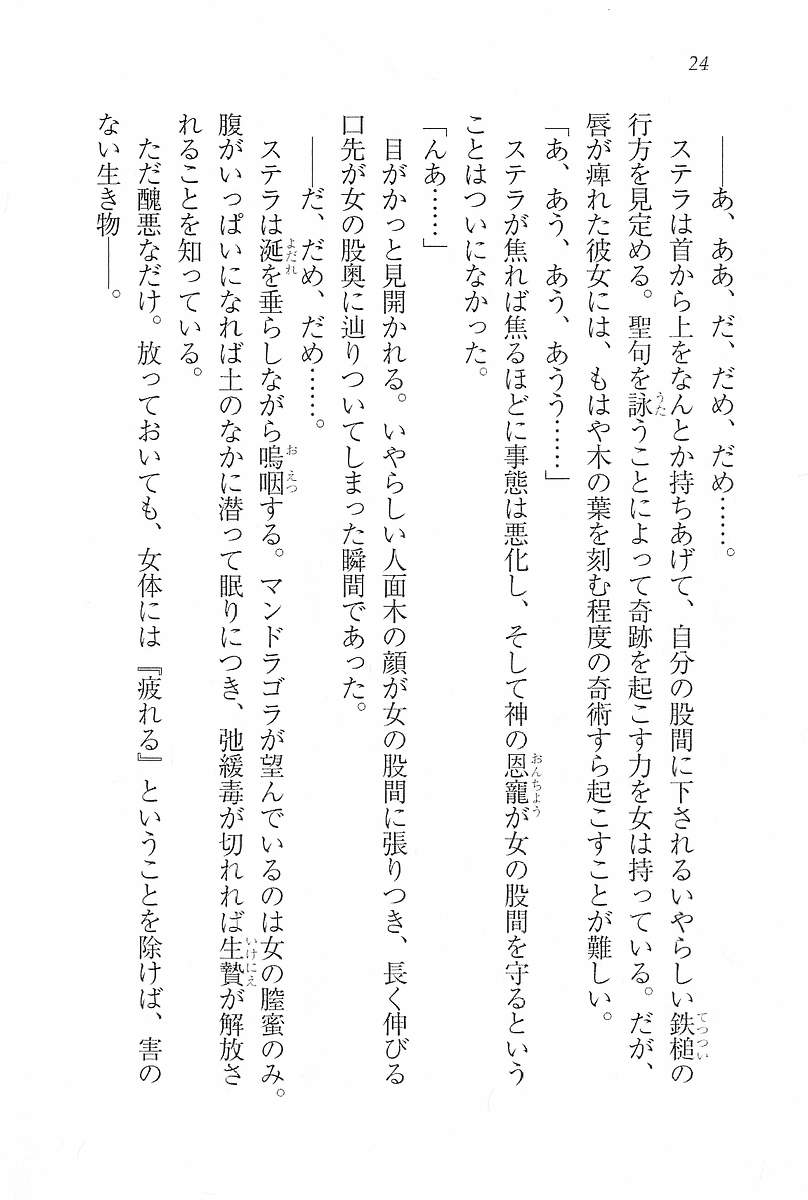 24
――あ、ああ、だ、だめ、だめ……。
ステラは首から上をなんとか持ちあげて、自分の股間に下されるいやらしい鉄槌の
行方を見定める。聖句を詠うことによって奇跡を起こす力を女は持っている。だが、
唇が痺れた彼女には、もはや木の葉を刻む程度の奇術すら起こすことが難しい。
「あ、あう、あう、あうう……」
ステラが焦れば焦るほどに事態は悪化し、そして神の恩寵が女の股間を守るという
ことはついになかった。
「んあ……」
目がかっと見開かれる。いやらしい人面木の顔が女の股間に張りつき、長く伸びる
口先が女の股奥に辿りついてしまった瞬間であった。
――だ、だめ、だめ……。
ステラは涎を垂らしながら嗚咽する。マンドラゴラが望んでいるのは女の膣蜜のみ。
腹がいっぱいになれば土のなかに潜って眠りにつき、弛緩毒が切れれば生贄が解放さ
れることを知っている。
ただ醜悪なだけ。放っておいても、女体には『疲れる』ということを除けば、害の
ない生き物――。